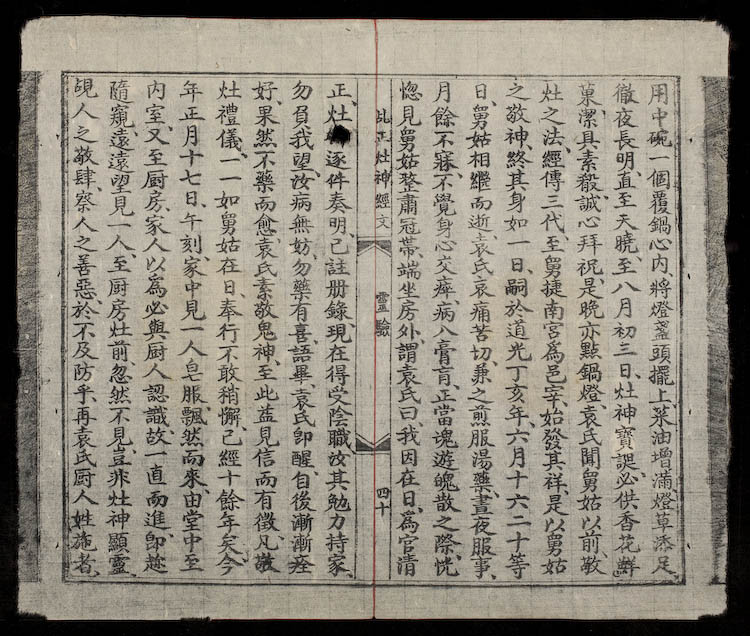 用中碗一個覆鍋心內、將燈盞頭擺上、菜油增滿燈草添足
徹夜長明、直至天曉、至八月初三日、灶神寶誕必供香花鮮
菓潔具素殽、誠心拜祝、是晚亦點鍋燈、袁氏聞舅姑以前敬
灶之法經傳三代、至舅捷南宮為邑宰、始發其祥、是以舅姑
之敬神、終其身如一日、嗣於道光丁亥年六月十六二十等
日、舅姑相繼而逝、袁氏哀痛苦切、兼之煎服湯藥、晝夜服事、
月餘不寐、不覺身心交瘁、病入膏肓、正當魂遊魄散之際、恍
惚見舅姑整肅冠帶、端坐房外、謂袁氏曰、我因在日、為官清
正、灶逐件奏明、已註册錄、現在得受陰職、汝其勉力持家、
勿負我望、汝病無妨、勿藥有喜、語畢、袁氏卽醒、自後漸漸痊
好、果然不藥而愈、袁氏素敬鬼神、至此益見信而有徵、凡敬
灶禮儀、一一如舅姑在日、奉行不敢稍懈、已經十餘年矣、今
年正月十七日、午刻、家中見一人、皂服飄然而來、由堂中至
內室、又至厨房、家人以為必與厨人認識、故一直而進、卽趂
隨窺、遠遠望見一人、至厨房灶前、忽然不見、豈非灶神顯靈、
覘人之敬肆、察人之善惡、於不及防乎、再袁氏厨人姓施者、
灶神經文
靈驗
四十